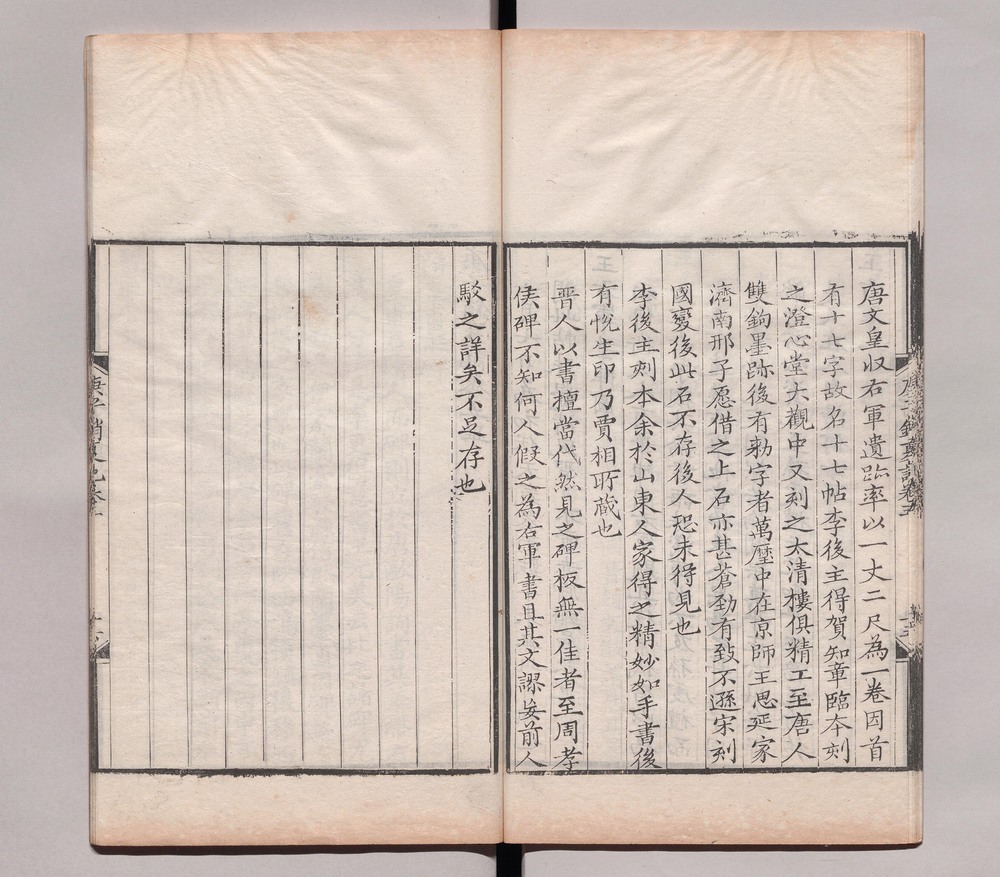 唐文皇収右軍遺跡率以一丈二尺為一卷因首
有十七字故名十七帖李後主得賀知章臨本刻
之澄心堂大觀中又刻之太清樓俱精工至唐人
雙鉤墨跡後有勑字者萬歷中在京師王思延家
濟南邢子愿借之上石亦甚蒼勁有致不遜宋刻
國變後此石不存後人恐未得見也
李後主刻本余於山東人家得之精妙如手書後
有悅生印乃賈相所藏也
晉人以書擅當代然見之碑板無一佳者至周孝
侯碑不知何人假之為右軍書且其文謬妄前人
駁之詳矣不足存也
庚子銷夏記卷